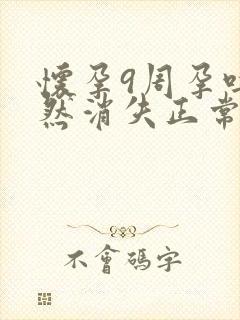 懷孕9周孕吐
然消失正常
不會碼字